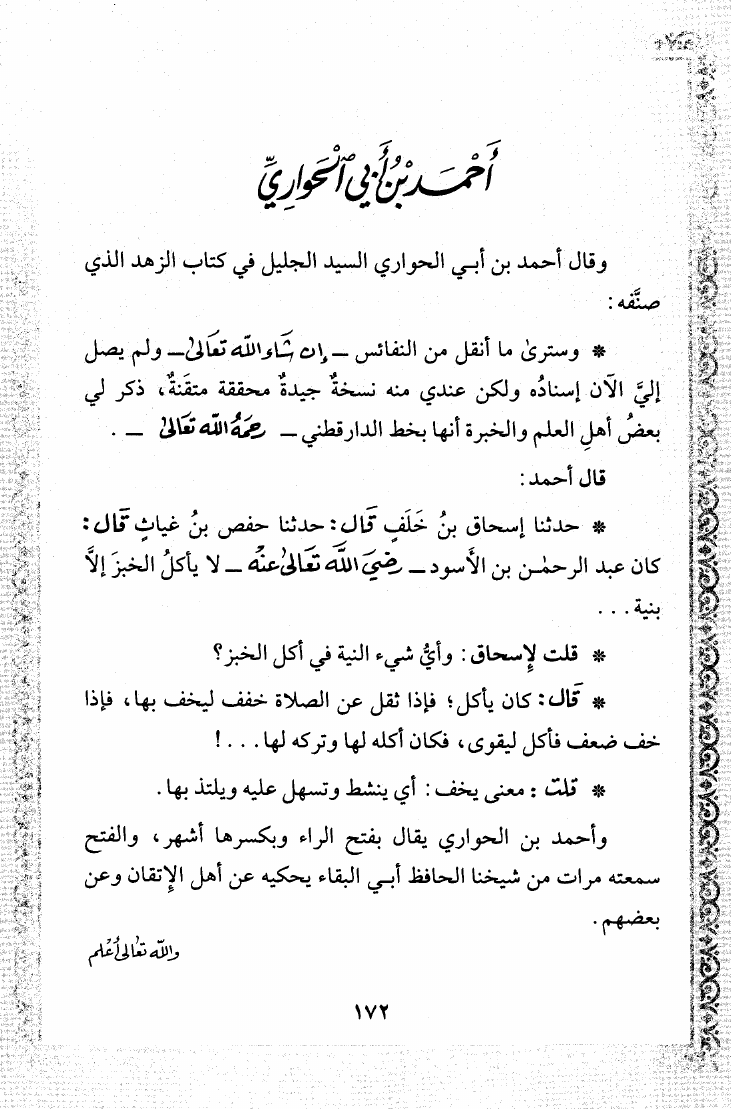 أَحْمَد بْنُ أَبِي ٱلْحَوَارِيِّ
وقال أحمد بن أبي الحواري السيد الجليل في كتاب الزهد الذي
صنَّفه :
* وسترىٰ ما أنقل من النفائس ــ إن شَاءَ اللّه تَعَالىٰ ــ ولم يصل
إليَّ الآن إسنادُه ولكن عندي منه نسخةٌ جيدةٌ محققة متقَنةٌ، ذكر لي
بعضُ أهلِ العلم والخبرة أنها بخط الدارقطني ــ رحمَهُ اللّه تَعَالىٰ ــ .
قال أحمد :
* حدثنا إسحاق بنُ خَلَفٍ قَال : حدثنا حفص بنُ غياثٍ قَال :
كان عبد الرحمٰن بن الأسود ــ رضيَ اللَّه تَعَالىٰ عنْه ــ لا يأكلُ الخبزَ إلاَّ
بنية . . .
* قلت لإسحاق : وأيُّ شيء النية في أكل الخبز؟
* قَال : كان يأكل؛ فإذا ثقل عن الصلاة خفف ليخف بها، فإذا
خف ضعف فأكل ليقوى، فكان أكله لها وتركه لها . . . !
* قلتُ : معنى يخف : أي ينشط وتسهل عليه ويلتذ بها .
وأحمد بن الحواري يقال بفتح الراء وبكسرها أشهر، والفتح
سمعته مرات من شيخنا الحافظ أبي البقاء يحكيه عن أهل الإتقان وعن
بعضهم .
واللّه تعَالىٰ أعْلم
١٧٢